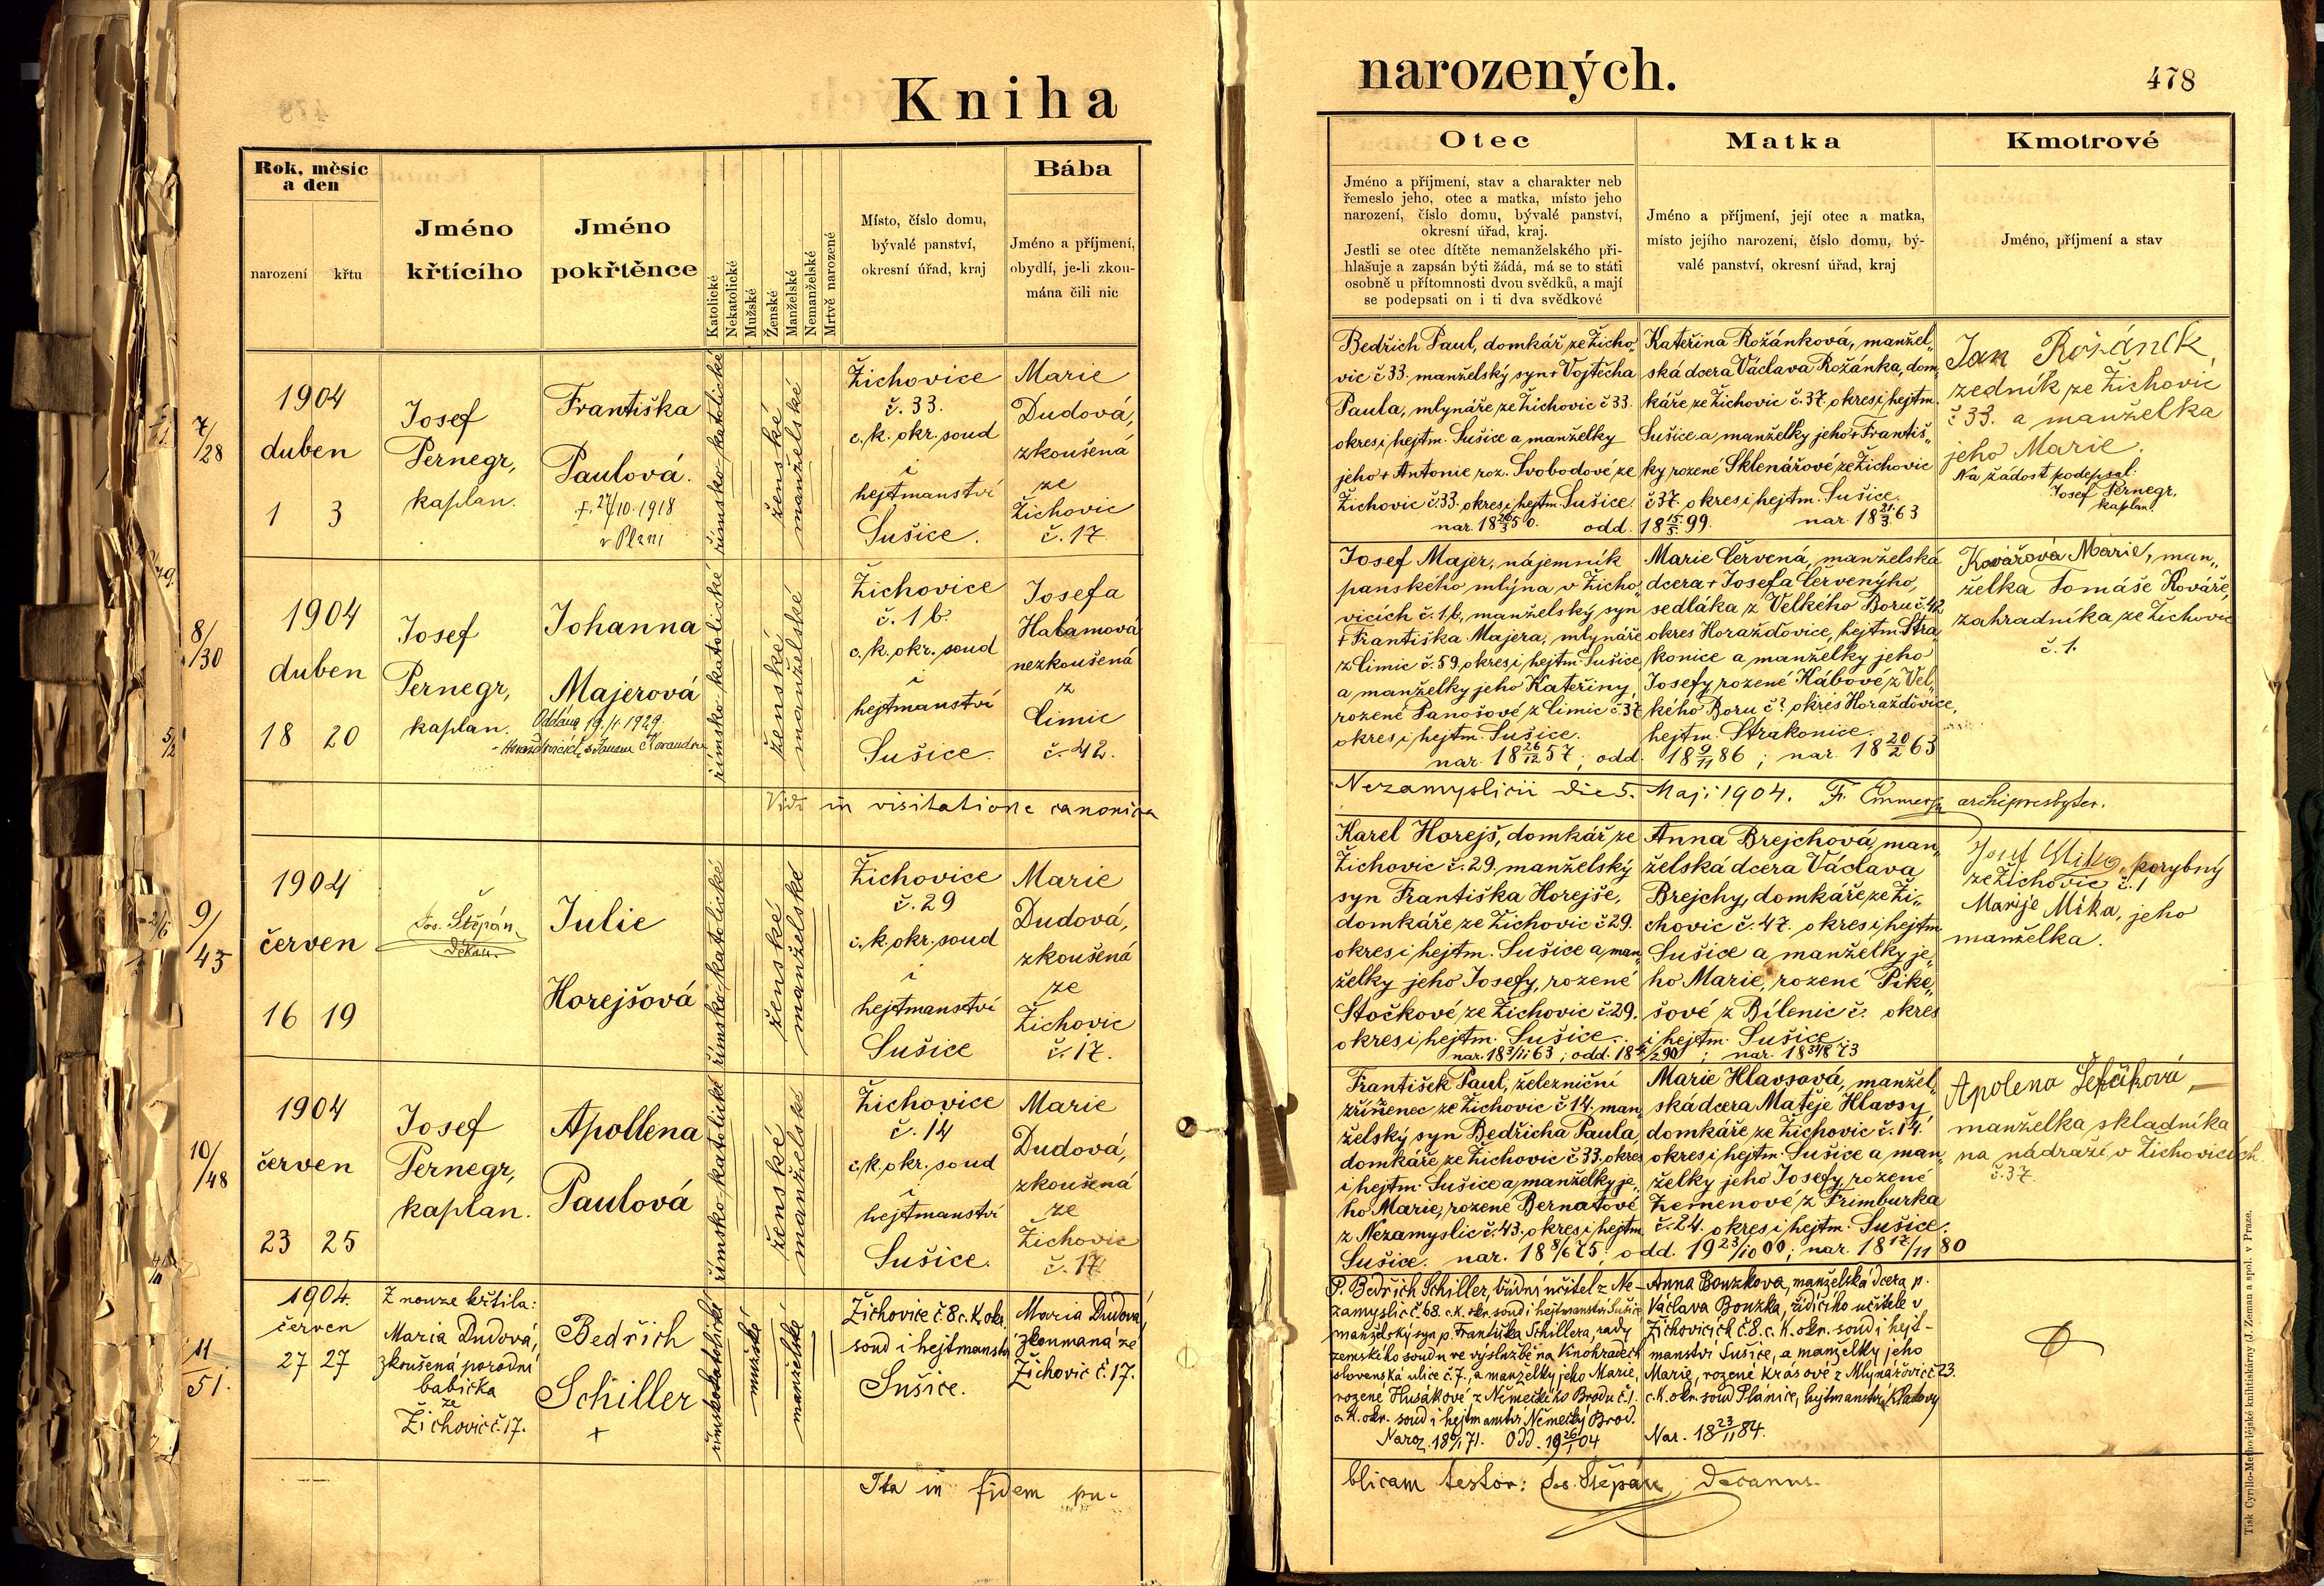 Kniha
narozených.
478
Rok, měsíc
a den
narození
křtu
Jméno
křtícího
Jméno
pokřtěnce
Katolické
Nekatolické
Mužské
Ženské
Manželské
Nemanželské
Mrtvě narozené
Místo, číslo domu,
bývalé panství,
okresní úřad, kraj
Bába
Jméno a příjmení,
obydlí, je-li zkou-
mána čili nic
Otec
Jméno a příjmení, stav a charakter neb
řemeslo jeho, otec a matka, místo jeho
narození, číslo domu, bývalé panství,
okresní úřad, kraj.
Jestli se otec dítěte nemanželského při-
hlašuje a zapsán býti žádá, má se to státi
osobně u přítomnosti dvou svědků, a mají
se podepsati on i ti dva svědkové
Matka
Jméno a příjmení, její otec a matka,
místo jejího narození, číslo domu, bý-
valé panství, okresní úřad, kraj
Kmotrové
Jméno, příjmení a stav
7/28
1904
duben
1 3
Josef
Pernegr,
kaplan.
Františka
Paulová.
†. 27/10. 1918
v Plzni
římsko-katolické
ženské
manželské
Žichovice
č. 33.
c. k. okr. soud
i
hejtmanství
Sušice.
Marie
Dudová,
zkoušená
ze
Žichovic
č. 17.
Bedřich Paul, domkář ze Žicho„
vic č 33. manželský syn † Vojtěcha
Paula, mlynáře ze Žichovic č 33.
okres i hejtm. Sušice a manželky
jeho † Antonie roz. Svobodové ze
Žichovic č. 33. okres i hejtm. Sušice.
nar. 18 26/3 50. odd. 18 15/5 99.
Kateřina Rožánková, manžel„
ská dcera Václava Rožánka, dom„
káře ze Žichovic č. 37. okres i hejtm.
Sušice a manželky jeho † Františ„
ky rozené Sklenářové ze Žichovic
č 37. okres i hejtm. Sušice.
nar. 18 21/3 63
Jan Rožánek,
zedník ze Žichovic
č 33. a manželka
jeho Marie.
Na žádost podepsal:
Josef Pernegr,
kaplan.
8/30
1904
duben
18 20
Josef
Pernegr,
kaplan.
Johanna
Majerová
Oddána 19./1. 1929.
římsko-katolické
ženské
manželské
Žichovice
č. 1 b.
c. k. okr. soud
i
hejtmanství
Sušice.
Josefa
Halamová
nezkoušená
z
Čimic
č. 42.
Josef Majer, nájemník
panského mlýna v Žicho„
vicích č. 1. b., manželský syn
† Františka Majera, mlynáře
z Čimic č. 59. okres i hejtm. Sušice
a manželky jeho Kateřiny,
rozené Panošové z Čimic č. 37
okres i hejtm. Sušice.
nar. 18 26/12 57; odd. 18 9/11 86; nar. 18 20/2 63
Marie Červená, manželská
dcera † Josefa Červenýho,
sedláka z Velkého Boru č. 42
okres Horažďovice, hejtm. Stra„
konice a manželky jeho
Josefy, rozené Kábové z Vel„
kého Boru č? okres Horažďovice,
hejtm. Strakonice.
Kovářová Marie, man„
želka Tomáše Kováře,
zahradníka ze Žichovic
č. 1.
Vidi in visitatione canonica
Nezamyslicii die 5. Maji 1904. archipresbyter.
9/43
1904
červen
16 19
Jos. Štěpán,
děkan.
Julie
Horejšová
římsko-katolické
ženské
manželské
Žichovice
č. 29
c. k. okr. soud
i
hejtmanství
Sušice
Marie
Dudová,
zkoušená
ze
Žichovic
č. 17.
Karel Horejš, domkář ze
Žichovic č. 29. manželský
syn Františka Horejše,
domkáře ze Žichovic č 29.
okres i hejtm. Sušice a man„
želky jeho Josefy, rozené
Stočkové ze Žichovic č 29.
okres i hejtm. Sušice.
Anna Brejchová, man„
želská dcera Václava
Brejchy, domkáře ze Ži„
chovic č. 47. okres i hejtm.
Sušice a manželky je„
ho Marie, rozené Pike„
šové z Bílenic č. okres
i hejtm. Sušice.
ze Žichovic č. 1
Marije Míka, jeho
manželka.
10/48
1904
červen
23 25
Josef
Pernegr,
kaplan.
Apollena
Paulová
římsko-katolické
ženské
manželské
Žichovice
č. 14
c. k. okr. soud
i
hejtmanství
Sušice.
Marie
Dudová,
zkoušená
ze
Žichovic
č. 17.
František Paul, železniční
zřízenec ze Žichovic č 14. man„
želský syn Bedřicha Paula,
domkáře ze Žichovic č 33. okres
i hejtm. Sušice a manželky je„
ho Marie, rozené Bernatové
z Nezamyslic č. 43. okres i hejtm.
Sušice. nar. 18 8/6 75, odd. 19 23/10 00; nar. 18 17/11 80
Marie Hlavsová, manžel„
ská dcera Matěje Hlavsy
domkáře ze Žichovic č. 14
okres i hejtm. Sušice a man„
želky jeho Josefy, rozené
Zemenové z Frimburka
č. 24. okres i hejtm. Sušice.
Apolena Šefčíková,
manželka skladníka
na nádraží v Žichovicích
č. 37.
11/51.
1904.
červen
27 27
Z nouze křtila:
Maria Dudová,
zkoušená porodní
babička
ze
Žichovic č. 17.
Bedřich
Schiller
+
římskokatolické
mužské
manželské
Žichovice č. 8 c. k. okr.
soud i hejtmanství
Sušice.
Maria Dudová,
zkoumaná ze
Žichovic č. 17.
P. Bedřich Schiller, třídní učitel z Ne-
zamyslic č. 68. c. k. okr. soud i hejtmanství Sušice
manželský syn p. Františka Schillera, rady
zemského soudu ve výslužbě na Vinohradech
slovenská ulice č. 7., a manželky jeho Marie,
rozené Husákové z Německého Brodu č. 1.
c. k. okr. soud i hejtmanství Německý Brod.
Anna Bouzkova, manželská dcera p.
Václava Bouzka, řídícího učitele v
Žichovicích č. 8. c. k. okr. soud i hejt-
manství Sušice, a manželky jeho
Marie, rozené Krásové z Mlynářovic č. 23.
c. k. okr. soud Plánice, hejtmanství Klatovy
Nar. 18 23/11 84.
Ita in fidem pu-
blicam testor: Jos. Štěpán, Decanus.
Tisk Cyrillo-Methodějské knihtiskárny (J. Zeman a spol. v Praze.